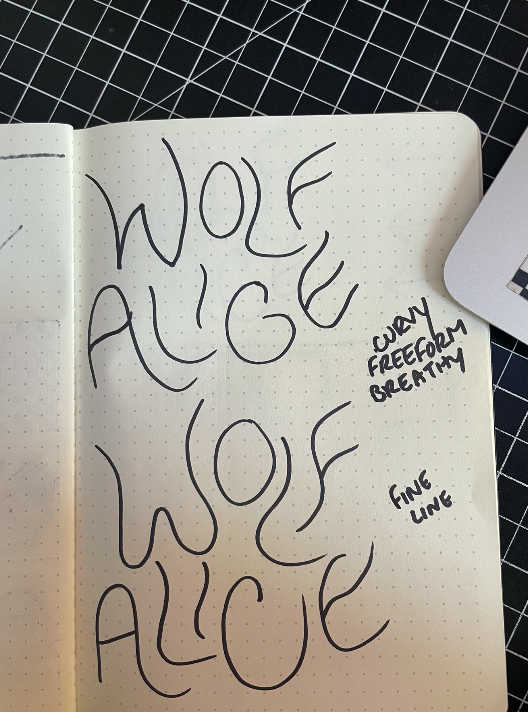 WOLF
ALIGE
CURVY
FREEFORM
BREATHY
WOLF
ALICE
FINE
LINE